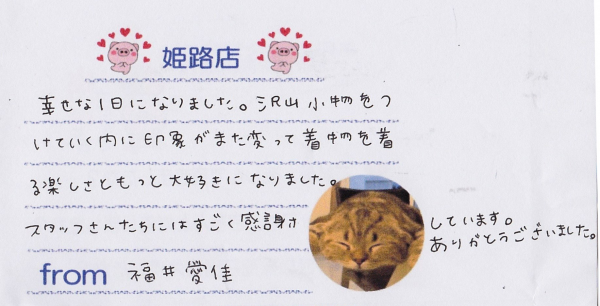 姫路店
幸せな1日になりました。沢山小物をつ
けていく内に印象がまた変って着物を着
る楽しさともっと大好きになりました。
スタッフさんたちにはすごく感謝
しています。
ありがとうございました。
from 福井愛佳